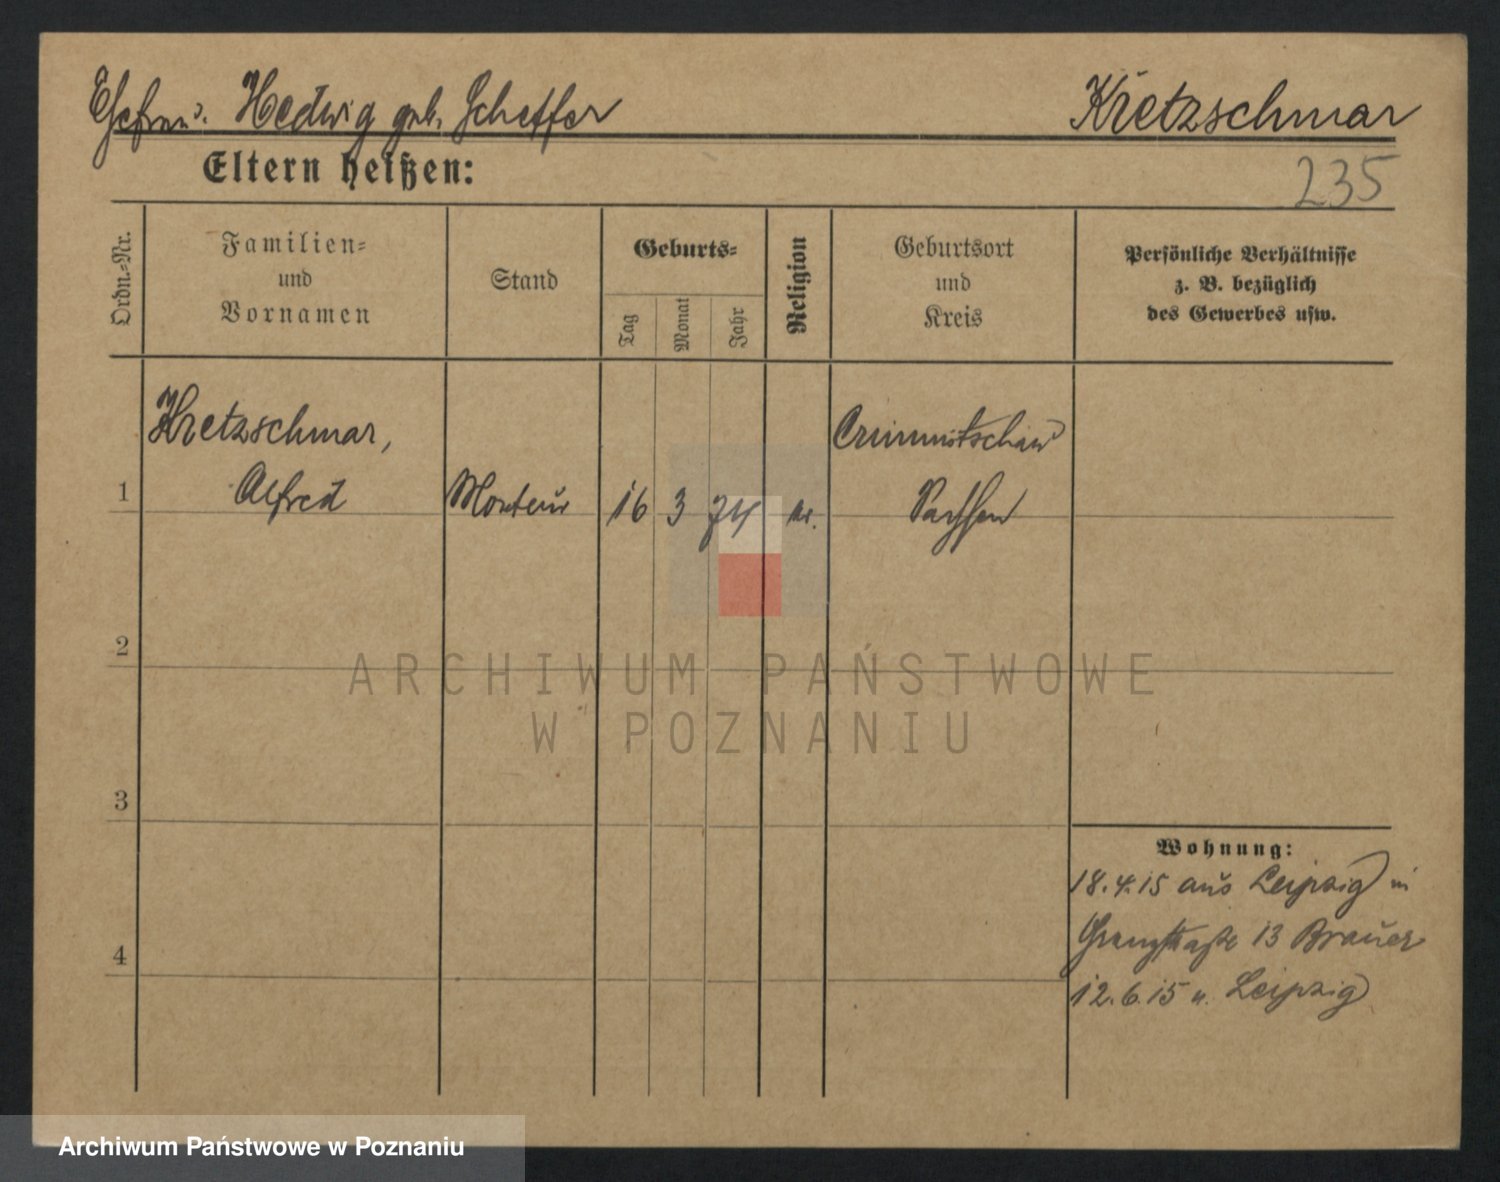 Ehefrau. Hedwig geb. Scheffer
Kretzschmar
Eltern heißen:
235
Ordn.-Nr.
Familien-
und
Vornamen
Stand
Geburts-
Tag
Monat
Jahr
Religion
Geburtsort
und
Kreis
Persönliche Verhältnisse
z. B. bezüglich
des Gewerbes usw.
Kretzschmar,
Crimmitschau
1 Alfred Monteur 16 3 74 Sachsen
2
ARCHIWUM PAŃSTWOWE
W POZNANIU
3
Wohnung:
18.4.15 aus Leipzig in
Grenzstraße 13 Brauer
4
12.6.15 n. Leipzig
Archiwum Państwowe w Poznaniu